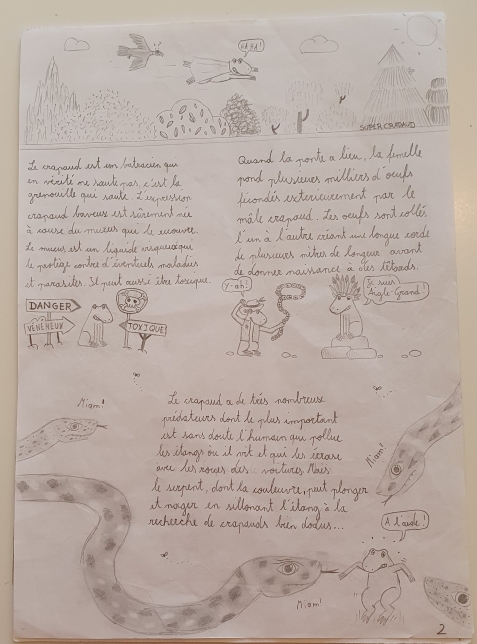 HA HA!
SUPER CRAPAUD
Le crapaud est un batracien qui
en vérité ne saute pas, c'est la
grenouille qui saute. L'expression
crapaud baveux est sûrement née
à cause du mucus qui le recouvre.
Le mucus est un liquide visqueux qui
le protège contre d'éventuels maladies
et parasites. Il peut aussi être toxique.
Quand la ponte a lieu, la femelle
pond plusieurs milliers d'oeufs
fécondés extérieurement par le
mâle crapaud. Les oeufs sont collés
l'un à l'autre créant une longue corde
de plusieurs mètres de longeur avant
de donner naissance à des têtards.
DANGER
VÉNÉNEUX
TOXIQUE
Y-ah!
Je suis
Aigle-Grand!
Le crapaud a de très nombreux
prédateurs dont le plus important
est sans doute l'humain qui pollue
les étangs ou il vit et qui les écrase
avec les roues des voitures. Mais
le serpent, dont la couleuvre, peut plonger
et nager en sillonant l'étang à la
recherche de crapauds bien dodus...
Miam!
Miam!
A l'aide!
Miam!
2